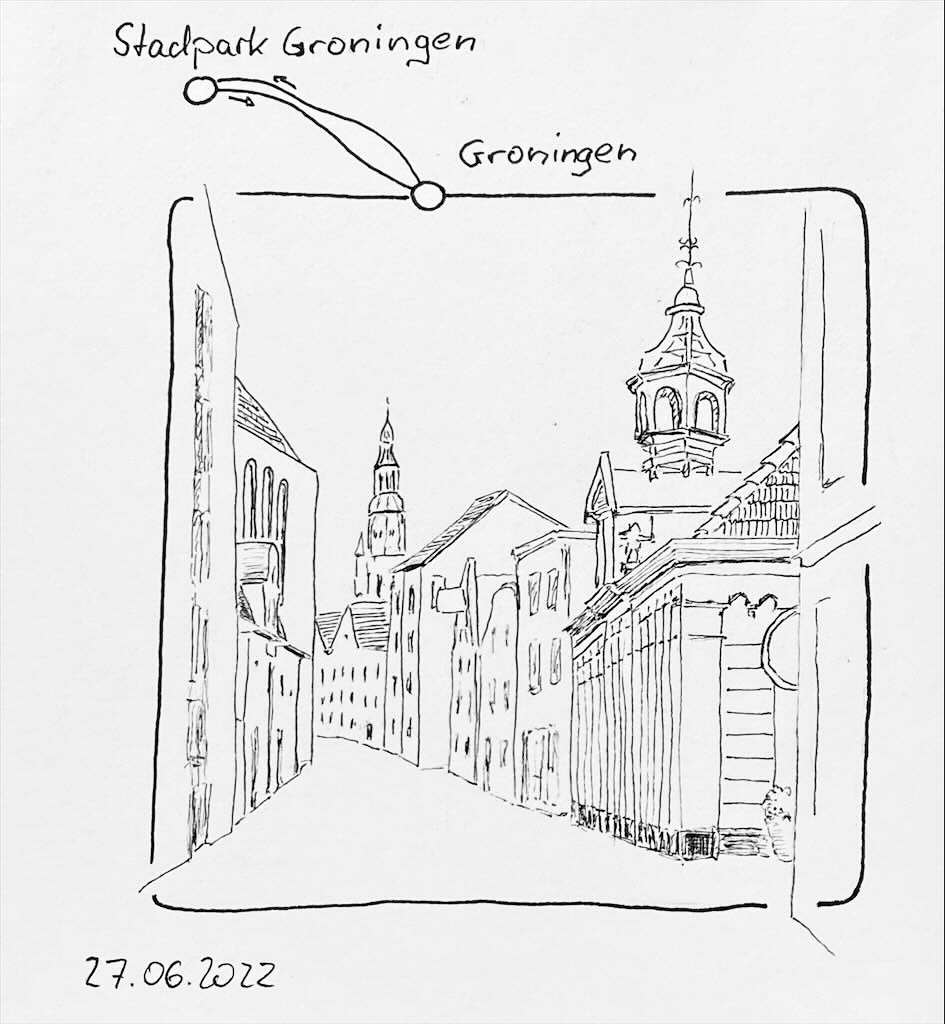 Stadpark Groningen
Groningen
27.06.2022